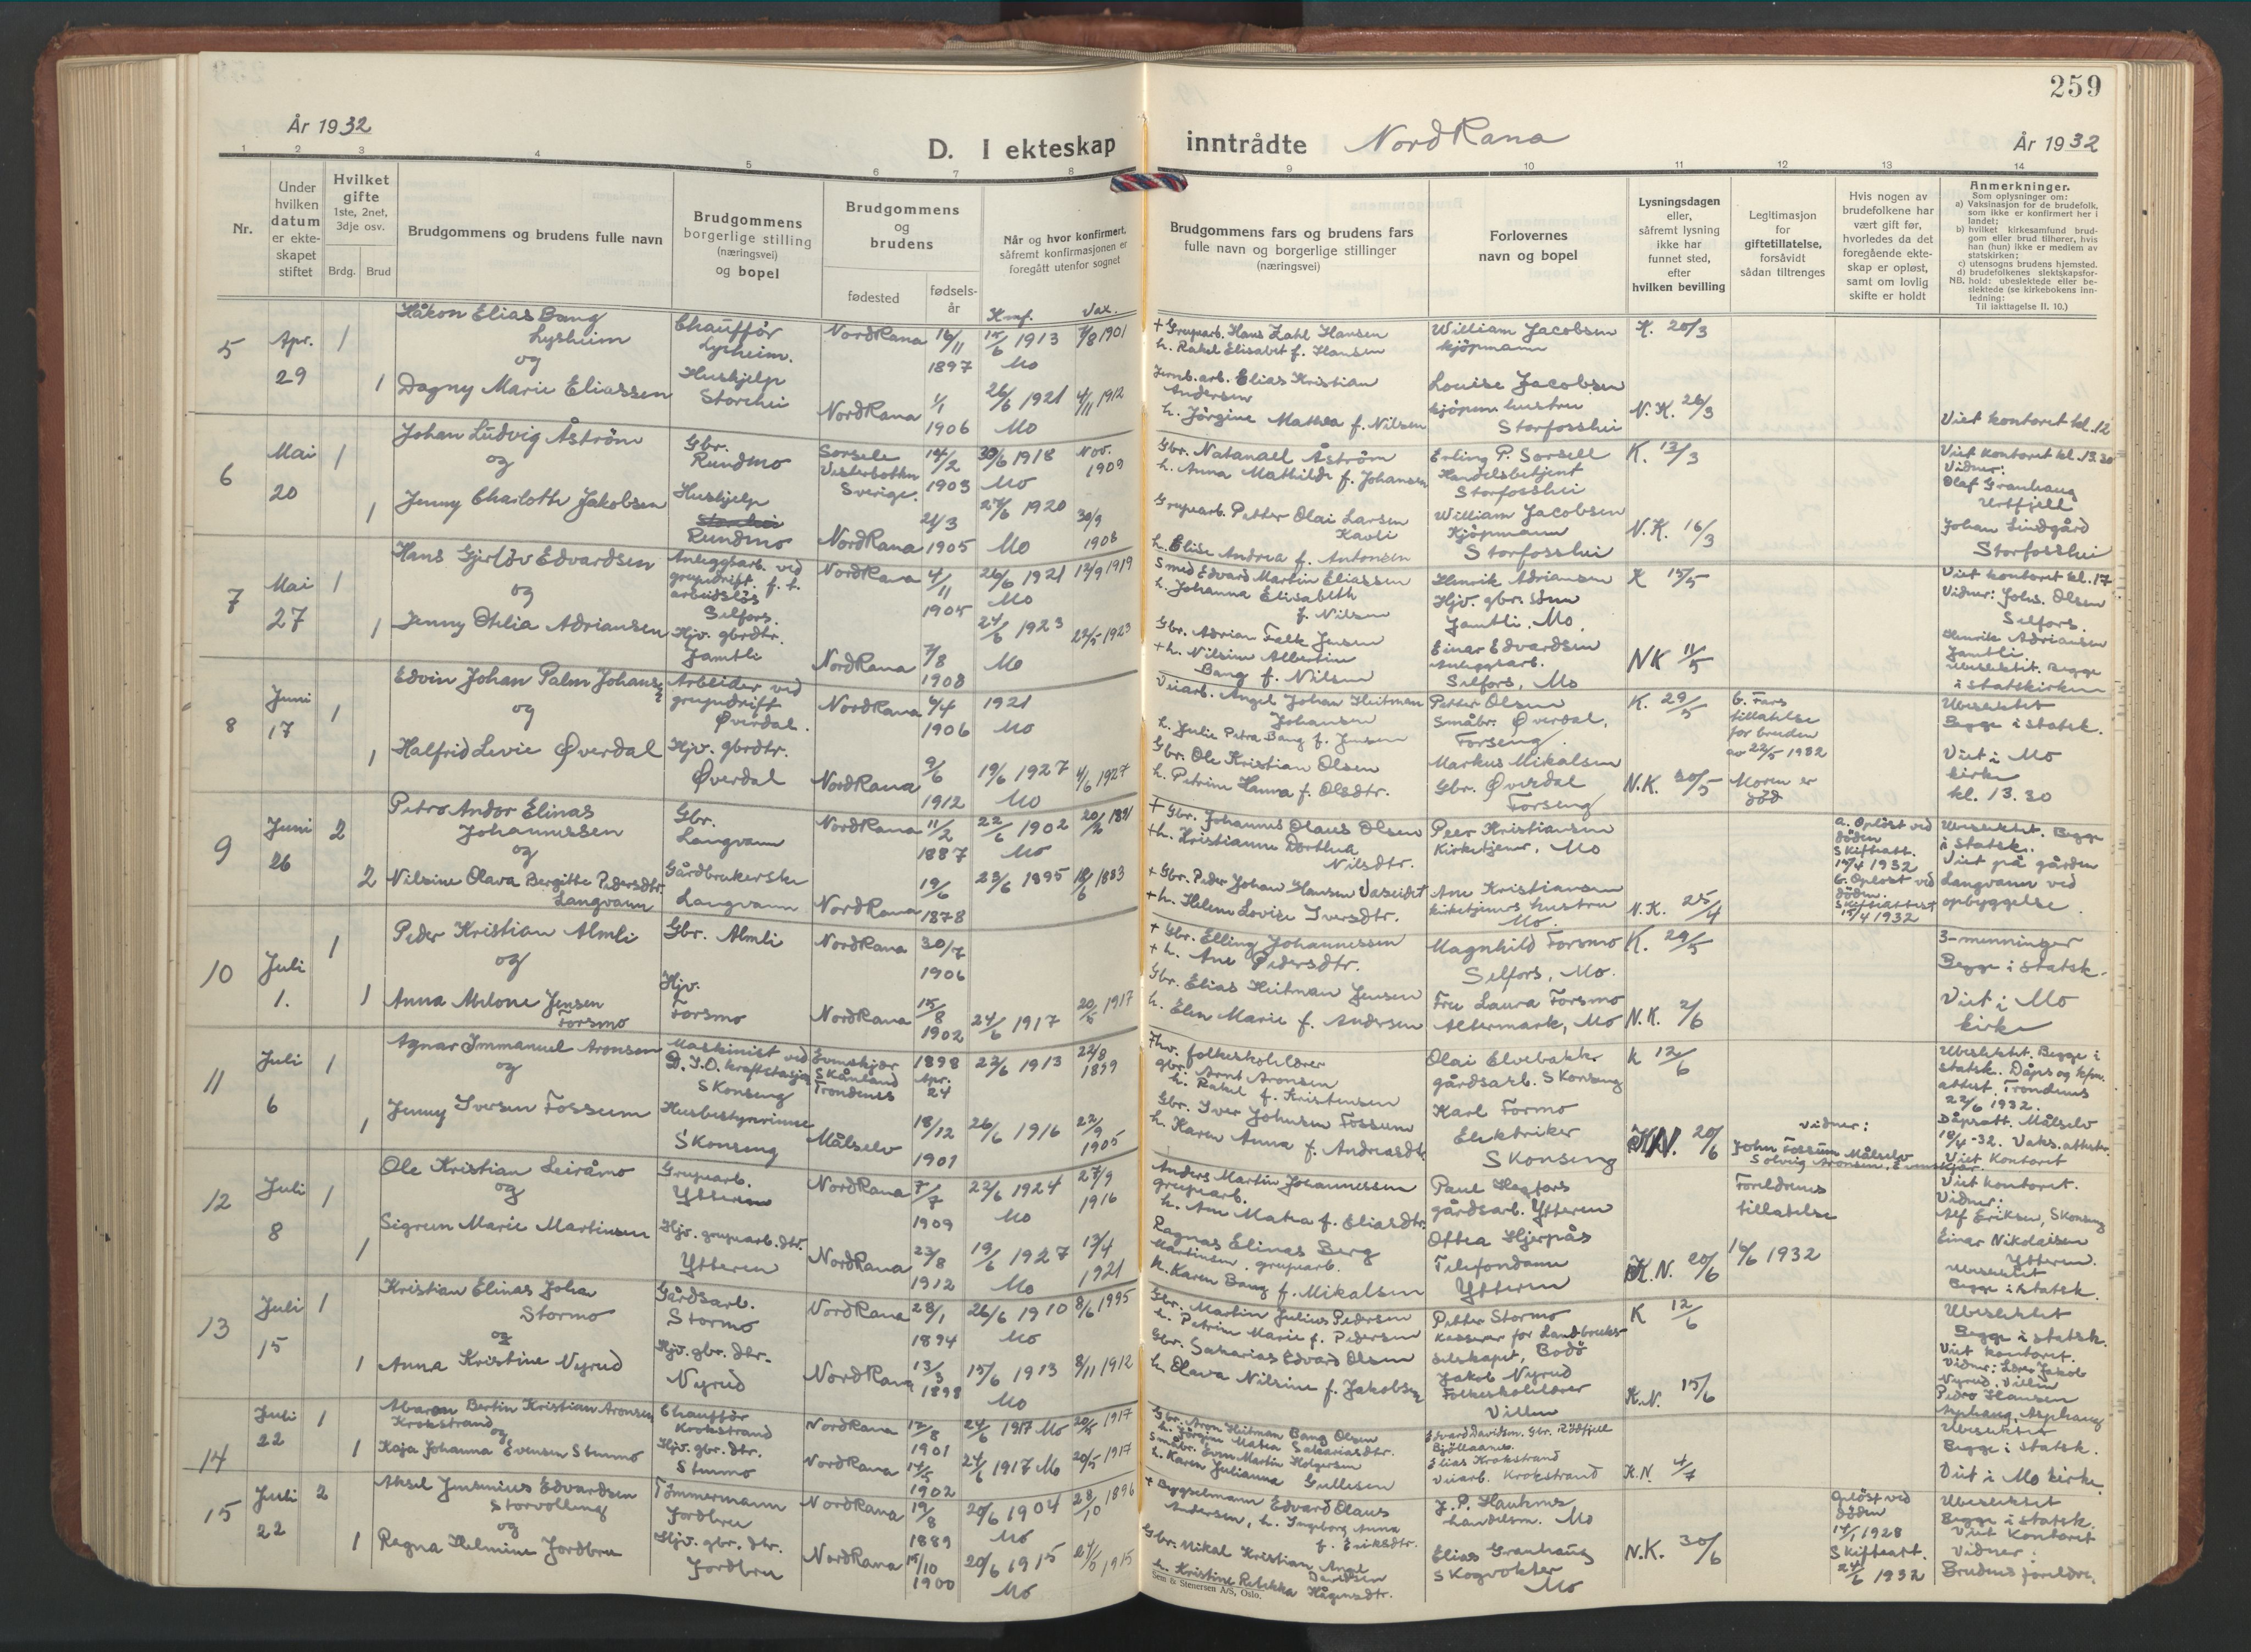 259
År 1932
D. I ekteskap inntrådte NordRana
År 1932
1 2 3 4 5 6 7 8 9 10 11 12 13 14
Nr.
Under hvilken datum er ekteskapet stiftet
Hvilket gifte 1ste, 2net, 3dje osv.
Brdg. Brud
Brudgommens og brudens fulle navn
Brudgommens borgerlige stilling (næringsvei) og bopel
Brudgommens og brudens
fødested
fødselsår
Når og hvor konfirmert, såfremt konfirmasjonen er foregått utenfor sognet
Konf. Vax.
Brudgommens fars og brudens fars fulle navn og borgerlige stillinger (næringsvei)
Forlovernes navn og bopel
Lysningsdagen eller, såfremt lysning ikke har funnet sted, efter hvilken bevilling
Legitimasjon for giftetillatelse, forsåvidt sådan tiltrenges
Hvis nogen av brudefolkene har vært gift før, hvorledes da det foregående ekteskap er opløst, samt om lovlig skifte er holdt
Anmerkninger.
Som oplysninger om:
a) Vaksinasjon for de brudefolk, som ikke er konfirmert her i landet;
b) hvilket kirkesamfund brudgom eller brud tilhører, hvis han (hun) ikke er medlem av statskirken;
c) utensogns brudens hjemsted.
d) brudefolkenes slektskapsforhold: ubeslektede eller beslektede (se kirkebokens innledning:
NB.
Til iakttagelse II. 10.)
5 Apr. 29 1 Håkon Elias Bang Lysheim Chaufför Lysheim. NordRana 16/11 1897 15/6 1913 Mo 7/8 1901
+ Gruparb. Hans Zahl Hansen
h. Rakel Elisabet f. Hansen
William Jacobsen kjöpmann K. 20/3
og
1 Dagny Marie Eliassen Hushjelp Storhei NordRana 1/1 1906 26/6 1921 Mo 4/11 1912
Jernb.arb. Elias Kristian Andersen
h. Jörgine Mathea f. Nilsen
Louise Jacobsen kjöpm. hustru Storfosshei N.K. 26/3
Viet kontoret kl. 12
6 Mai 20 1 Johan Ludvig Åström Gbr. Rundmo Sorsele Vesterbotten Sverige. 14/2 1903 30/6 1918 Mo Nov. 1909
Gbr. Natanael Åström
h. Anna Mathilde f. Johansen
Erling P. Sorsell Handelsbetjent Storfosshei K. 13/3
og
1 Jenny Charlotte Jakobsen Hushjelp Rundmo NordRana 21/3 1905 27/6 1920 Mo 30/9 1908
Gruparb. Petter Olai Larsen Kavli
h. Elise Andrea f. Antonsen
William Jacobsen Kjöpmann Storfosshei N.K. 16/3
Viet kontoret kl. 13.30
Vidner:
Olaf Granhaug
Urtfjell
Johan Lindgård
Storfosshei
7 Mai 27 1 Hans Gjerløv Edvardsen Anleggsarb. ved grupedrift. f. t. arbeidslös Selfors. NordRana 4/11 1905 26/6 1921 Mo 12/9 1919
Smed Edvard Martin Eliassen
h. Johanna Elisabeth f. Nilsen
Henrik Adriansen Hjv. gbr. sönn Jamtli, Mo. K 15/5
og
1 Jenny Otelia Adriansen Hjv. gbrdtr. Jamtli NordRana 7/8 1908 24/6 1923 Mo 22/5 1923
Gbr. Adrian Falk Jensen
+ h. Nilsine Albertine Bang f. Nilsen
Einar Edvardsen Anleggsarb. Selfors, Mo NK 11/5
Viet kontoret kl. 17
Vidner: Johs. Olsen
Selfors.
Henrik Adriansen
Jamtli.
Ubeslektet. Begge
i statskirken
8 Juni 17 1 Edvin Johan Palm Johansen Arbeider ved grupedrift Øverdal. NordRana 4/4 1906 1921 Mo
Veiarb. Angel Johan Heitman Johansen
h. Julie Petra Bang f. Jensen
Petter Olsen Småbr. Øverdal, Forseng. K. 29/5
og
1 Halfrid Levie Øverdal Hjv. gbrdtr. Øverdal NordRana 9/6 1912 19/6 1927 Mo 4/6 1927
Gbr. Ole Kristian Olsen
h. Petrine Hanna f. Olsdtr.
Markus Mikalsen Gbr. Øverdal Forseng N.K. 30/5
b. Fars tillatelse for bruden av 22/5 1932 Moren er död
Ubeslektet
Begge i statsk.
Viet i Mo
kirke
kl. 13.30
9 Juni 26 2 Petro Andor Elinas Johannessen Gbr. Langvann NordRana 11/2 1887 22/6 1902 Mo 20/6 1891
+ Gbr. Johannes Olaus Olsen
+ h. Kristianne Dorthea Nilsdtr.
Peer Kristiansen Kirketjener, Mo
og
2 Nilsine Olava Bergitte Pedersdtr. Langvann Gårdbrukerske Langvann NordRana 19/6 1878 23/6 1895 18/6 1883
+ Gbr. Peder Johan Hansen Vaseidet
+ h. Helene Lovise Iversdtr.
Ane Kristiansen kirketjeners hustru Mo. N.K. 25/4
a. Oplöst ved döden Skifteatt. 12/4 1932
b. Oplöst ved döden. Skifteattest 15/4 1932
Ubeslektet. Begge
i statsk.
Viet på gården
Langvann ved
opbyggelse.
10 Juli 1. 1 Peder Kristian Almli Gbr. Almli NordRana 30/7 1906
+ Gbr. Elling Johannessen
+ h. Ane Pedersdtr.
Magnhild Forsmo Selfors, Mo. K. 29/5
og
1 Anna Melone Jensen Forsmo Hjv. Forsmo NordRana 15/8 1902 24/6 1917 20/5 1917
Gbr. Elias Heitman Jensen
h. Elen Marie f. Andersen
Fru Laura Forsmo Altermark, Mo N.K. 2/6
3-menninger
Begge i statsk.
Viet i Mo
kirke
11 Juli 6 1 Agnar Immanuel Aronsen Maskinist ved D.I.O. kraftstasjon Skonseng Evenskjær Skånland Trondenes 1898 Apr. 24 22/6 1913 22/8 1899
Fhv. folkeskolelærer gbr. Arnt Aronsen
h. Rakel f. Kristensen
Olai Elvebakk gårdsarb. Skonseng K 12/6
og
1 Jenny Iversen Fossum Husbestyrerinne Skonseng Målselv 18/12 1901 26/6 1916 22/9 1905
Gbr. Iver Johnsen Fossum
h. Karen Anna f. Andreasdtr
Karl Formo Elektriker Skonseng KN. 20/6
Vidner:
John Fossum Målselv
Solveig Aronsen, Evenskjær.
Ubeslektet. Begge i
statsk. Dåps og kfm.
attest. Trondenes
22/6 1932.
Dåpsatt. Målselv
18/4-32. Vaks.attester
Viet Kontoret
12 Juli 8 1 Ole Kristian Leiråmo Gruparb. Ytteren NordRana 7/7 1909 22/6 1924 Mo 27/9 1916
Anders Martin Johannessen gruparb.
h. Ane Matea f. Eliasdtr.
Paul Hagfors gårdsarb. Ytteren
og
1 Sigrun Marie Martinsen Hjv. gruparb.dtr. Ytteren NordRana 23/8 1912 19/6 1927 Mo 13/4 1921
Ragnas Elinas Berg Martinsen, gruparb.
h. Karen Bang f. Mikalsen
Oftea Hjerpås Telefondame Ytteren K.N. 20/6
Foreldrenes tillatelse 16/6 1932
Viet kontoret.
Vidner:
Alf Eriksen, Skonseng
Einar Nikolaisen
Ytteren.
Ubeslektet
Begge i statsk.
13 Juli 15 1 Kristian Elinas Joha Stormo Gårdsarb. Stormo NordRana 28/1 1894 26/6 1910 Mo 8/6 1995
Gbr. Martin Julius Pedersen
h. Petrine Marie f. Pedersen
Petter Stormo kasserer for Landbruksselskapet, Bodö K 12/6
og
1 Anna Kristine Nyrud Hjv. gbr. dtr. Nyrud NordRana 13/3 1898 15/6 1913 Mo 8/11 1912
Gbr. Sakarias Edvard Olsen
h. Olava Nilsine f. Jakobsen
Jakob Nyrud Folkeskolelærer Villen K.N. 15/6
Ubeslektet
Begge i statsk.
Viet kontoret.
Vidner: Lærer Jakob
Nyrud, Villen
Pedro Hansen
Asphaug, Asphaug
14 Juli 22 1 Abaron Bertin Kristian Aronsen Krokstrand Chaufför Krokstrand NordRana 12/8 1901 24/6 1917 Mo 20/5 1917
Gbr. Aron Heitman Bang Olsen
h. Jörgine Matea Sakariasdtr.
Edvard Davidsen. Gbr. Rödfjell Bjöllaanes.
og
1 Kaja Johanna Evensen Stenmo Hjv. gbr. dtr. Stenmo NordRana 14/5 1902 24/6 1917 Mo 20/5 1917
Småbr. Even Martin Holgersen
h. Karen Julianna Gullesen
Elias Krokstrand Veiarb. Krokstrand K.N. 4/7
Ubeslektet
Begge i statsk.
Viet i Mo kirke.
15 Juli 22 2 Aksel Jensenius Edvardsen Storvolleng Tömmermann Jordbru NordRana 19/8 1889 20/6 1904 Mo 28/10 1896
+ Byggselmann Edvard Olaus Andersen, h. Ingeborg Anna f. Eriksdtr.
J. P. Haukenes handelsm. Mo
og
1 Ragna Helmine Jordbru Hjv. gbr. dtr. Jordbru NordRana 15/10 1900 20/6 1915 Mo 27/5 1915
Gbr. Mikal Kristian Angel Davidsen
h. Kristine Rebekka Hågensdtr.
Elias Granhaug Skogvokter Mo N.K. 30/6
Oplöst ved döden 14/1 1928 Skifteatt. 24/6 1932
Ubeslektet
Begge i statsk.
Viet Kontoret
Vidner:
Brudens foreldre.
Sem & Stenersen A/S, Oslo.